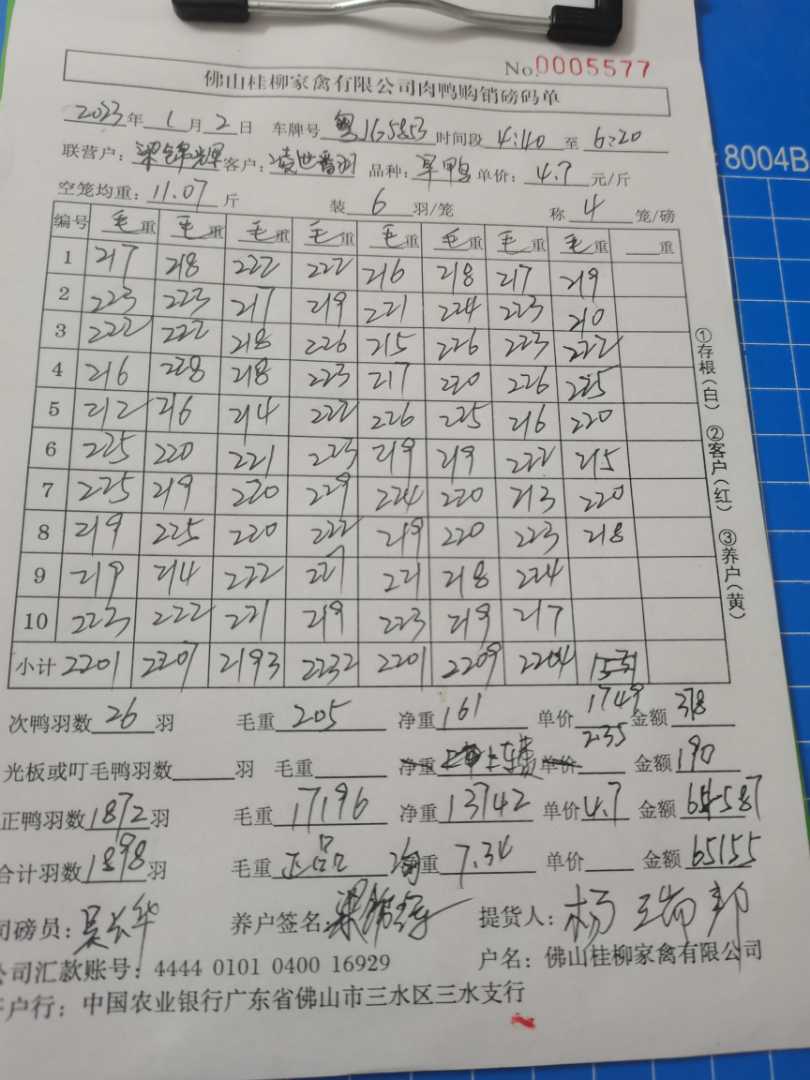 No.0005577
佛山桂柳家禽有限公司肉鸭购销磅码单
2023年 1月 2日 车牌号 粤J65853 时间段 4:40 至 6:20
联营户: 梁锦辉 客户: 凌世番羽 品种: 旱鸭 单价: 4.7 元/斤
空笼均重: 11.07 斤 装 6 羽/笼 称 4 笼/磅
编号 毛重 毛重 毛重 毛重 毛重 毛重 毛重 毛重 重
1 217 218 222 222 216 218 217 219
2 223 223 217 219 221 224 223 210
3 222 222 218 226 215 226 223 222
4 216 228 218 223 217 220 226 225
5 212 216 214 222 226 225 216 220
6 225 220 221 223 219 219 222 215
7 225 219 220 229 224 220 213 220
8 219 225 220 222 219 220 223 218
9 219 214 222 227 221 218 224
10 223 222 221 219 223 219 217
小计 2201 2207 2193 2232 2201 2209 2204
①存根(白) ②客户(红) ③养户(黄)
8004B
次鸭羽数 26 羽 毛重 205 净重 161 单价 2.35 金额 378
1749
光板或叮毛鸭羽数 羽 毛重 净重 上车费 单价 金额 190
正鸭羽数 1872 羽 毛重 17196 净重 13742 单价 4.7 金额
合计羽数 1898 羽 毛重 正品 重 7.34 单价 金额 65155
司磅员: 养户签名 提货人: 杨
公司汇款账号: 4444 0101 0400 16929 户名: 佛山桂柳家禽有限公司
户行: 中国农业银行广东省佛山市三水区三水支行